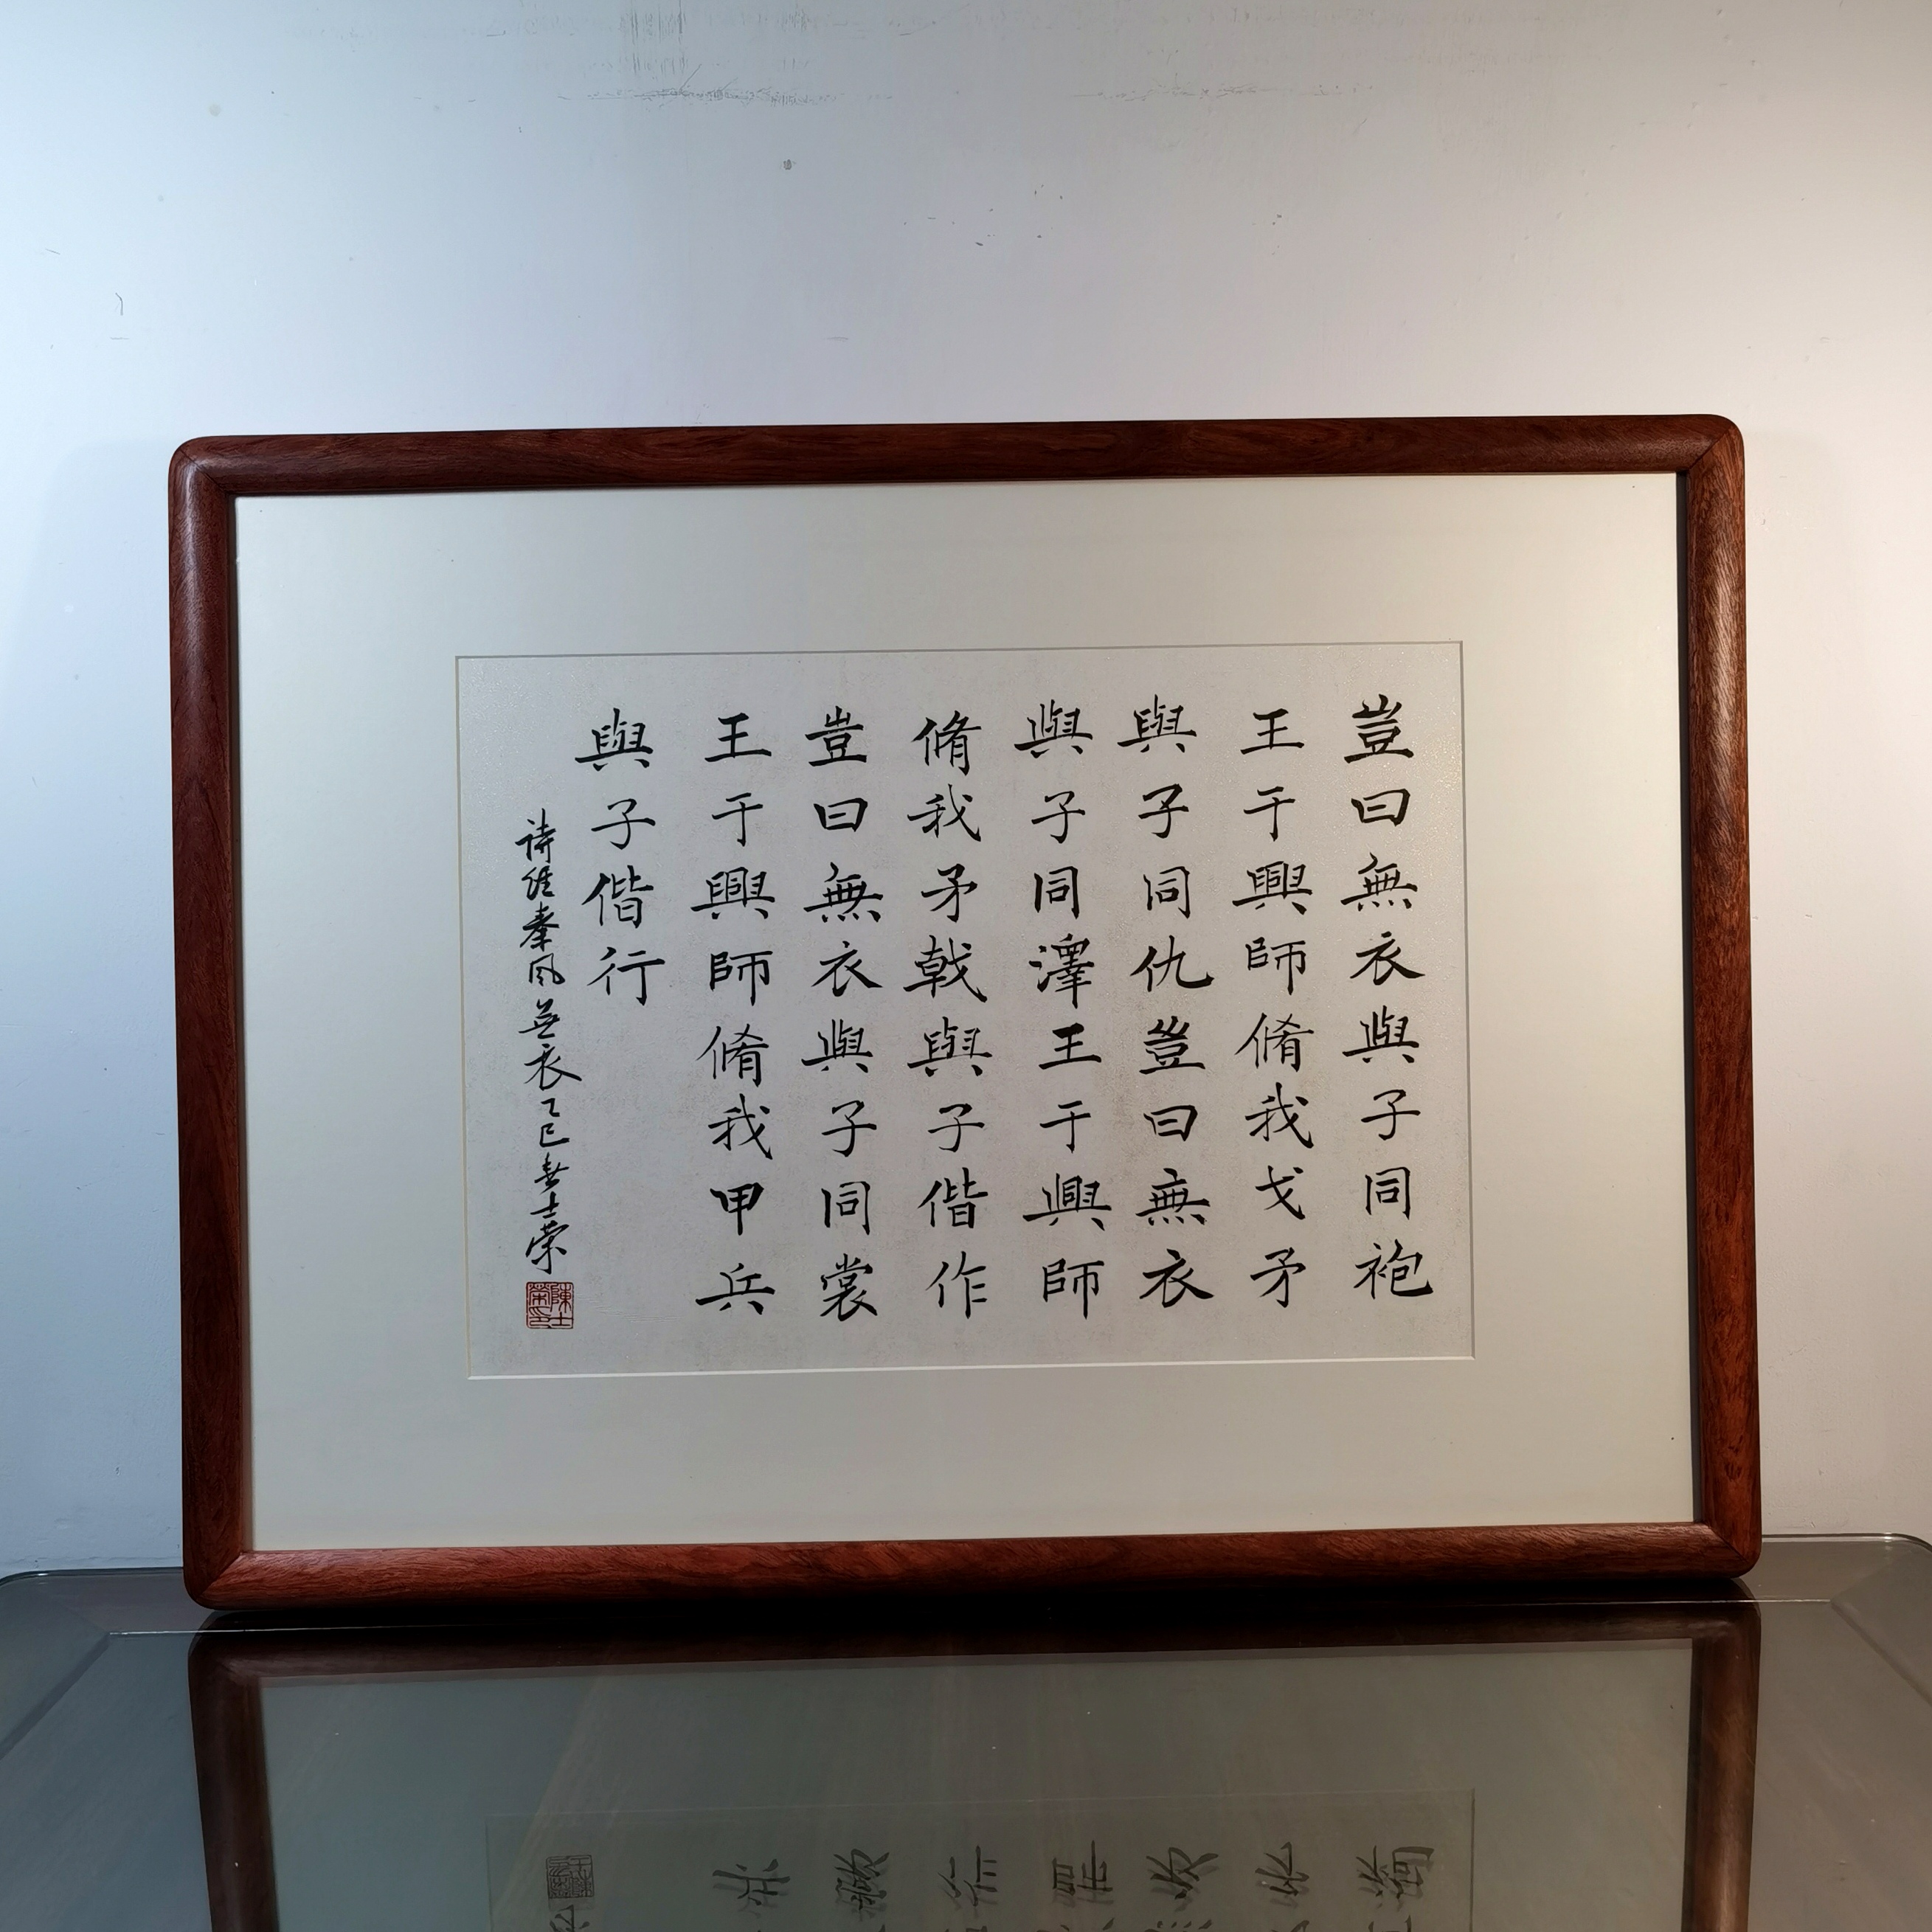 豈曰無衣與子同袍
王于興師脩我戈矛
與子同仇豈曰無衣
與子同澤王于興師
脩我矛戟與子偕作
豈曰無衣與子同裳
王于興師脩我甲兵
與子偕行
诗经秦风無衣乙巳春士荣
陳士榮印